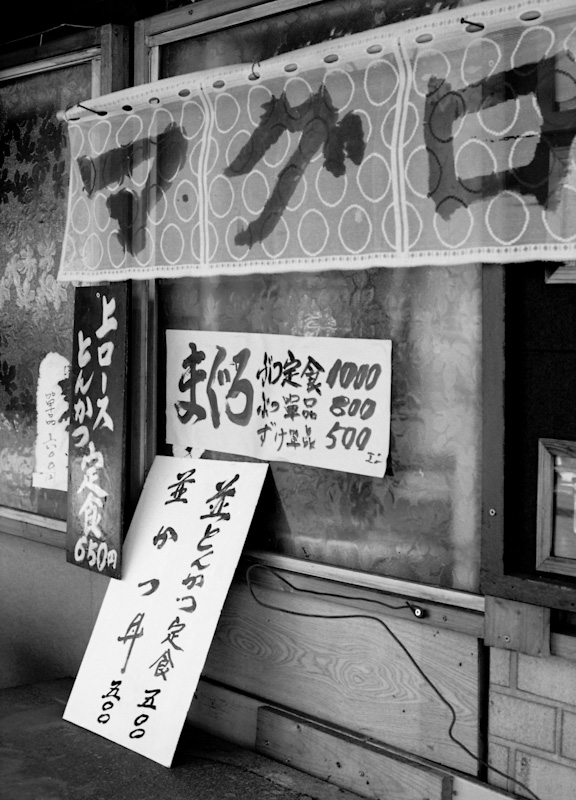 マグロ
まぐろ
ぶつ定食 1000
ぶつ 単品 800
ずけ単品 500
上ロース
とんかつ定食
650円
並とんかつ定食
五〇〇
並かつ丼
五〇〇